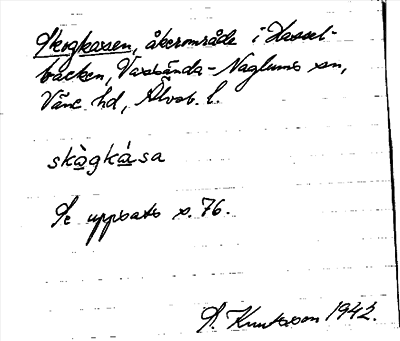 Skogkasen, åkerområde i Hassel-
backen, Vassända-Naglums sn,
Väne hd, Älvsb. l.
skògkása
Se uppsats s. 76.
A. Knutsson 1942.